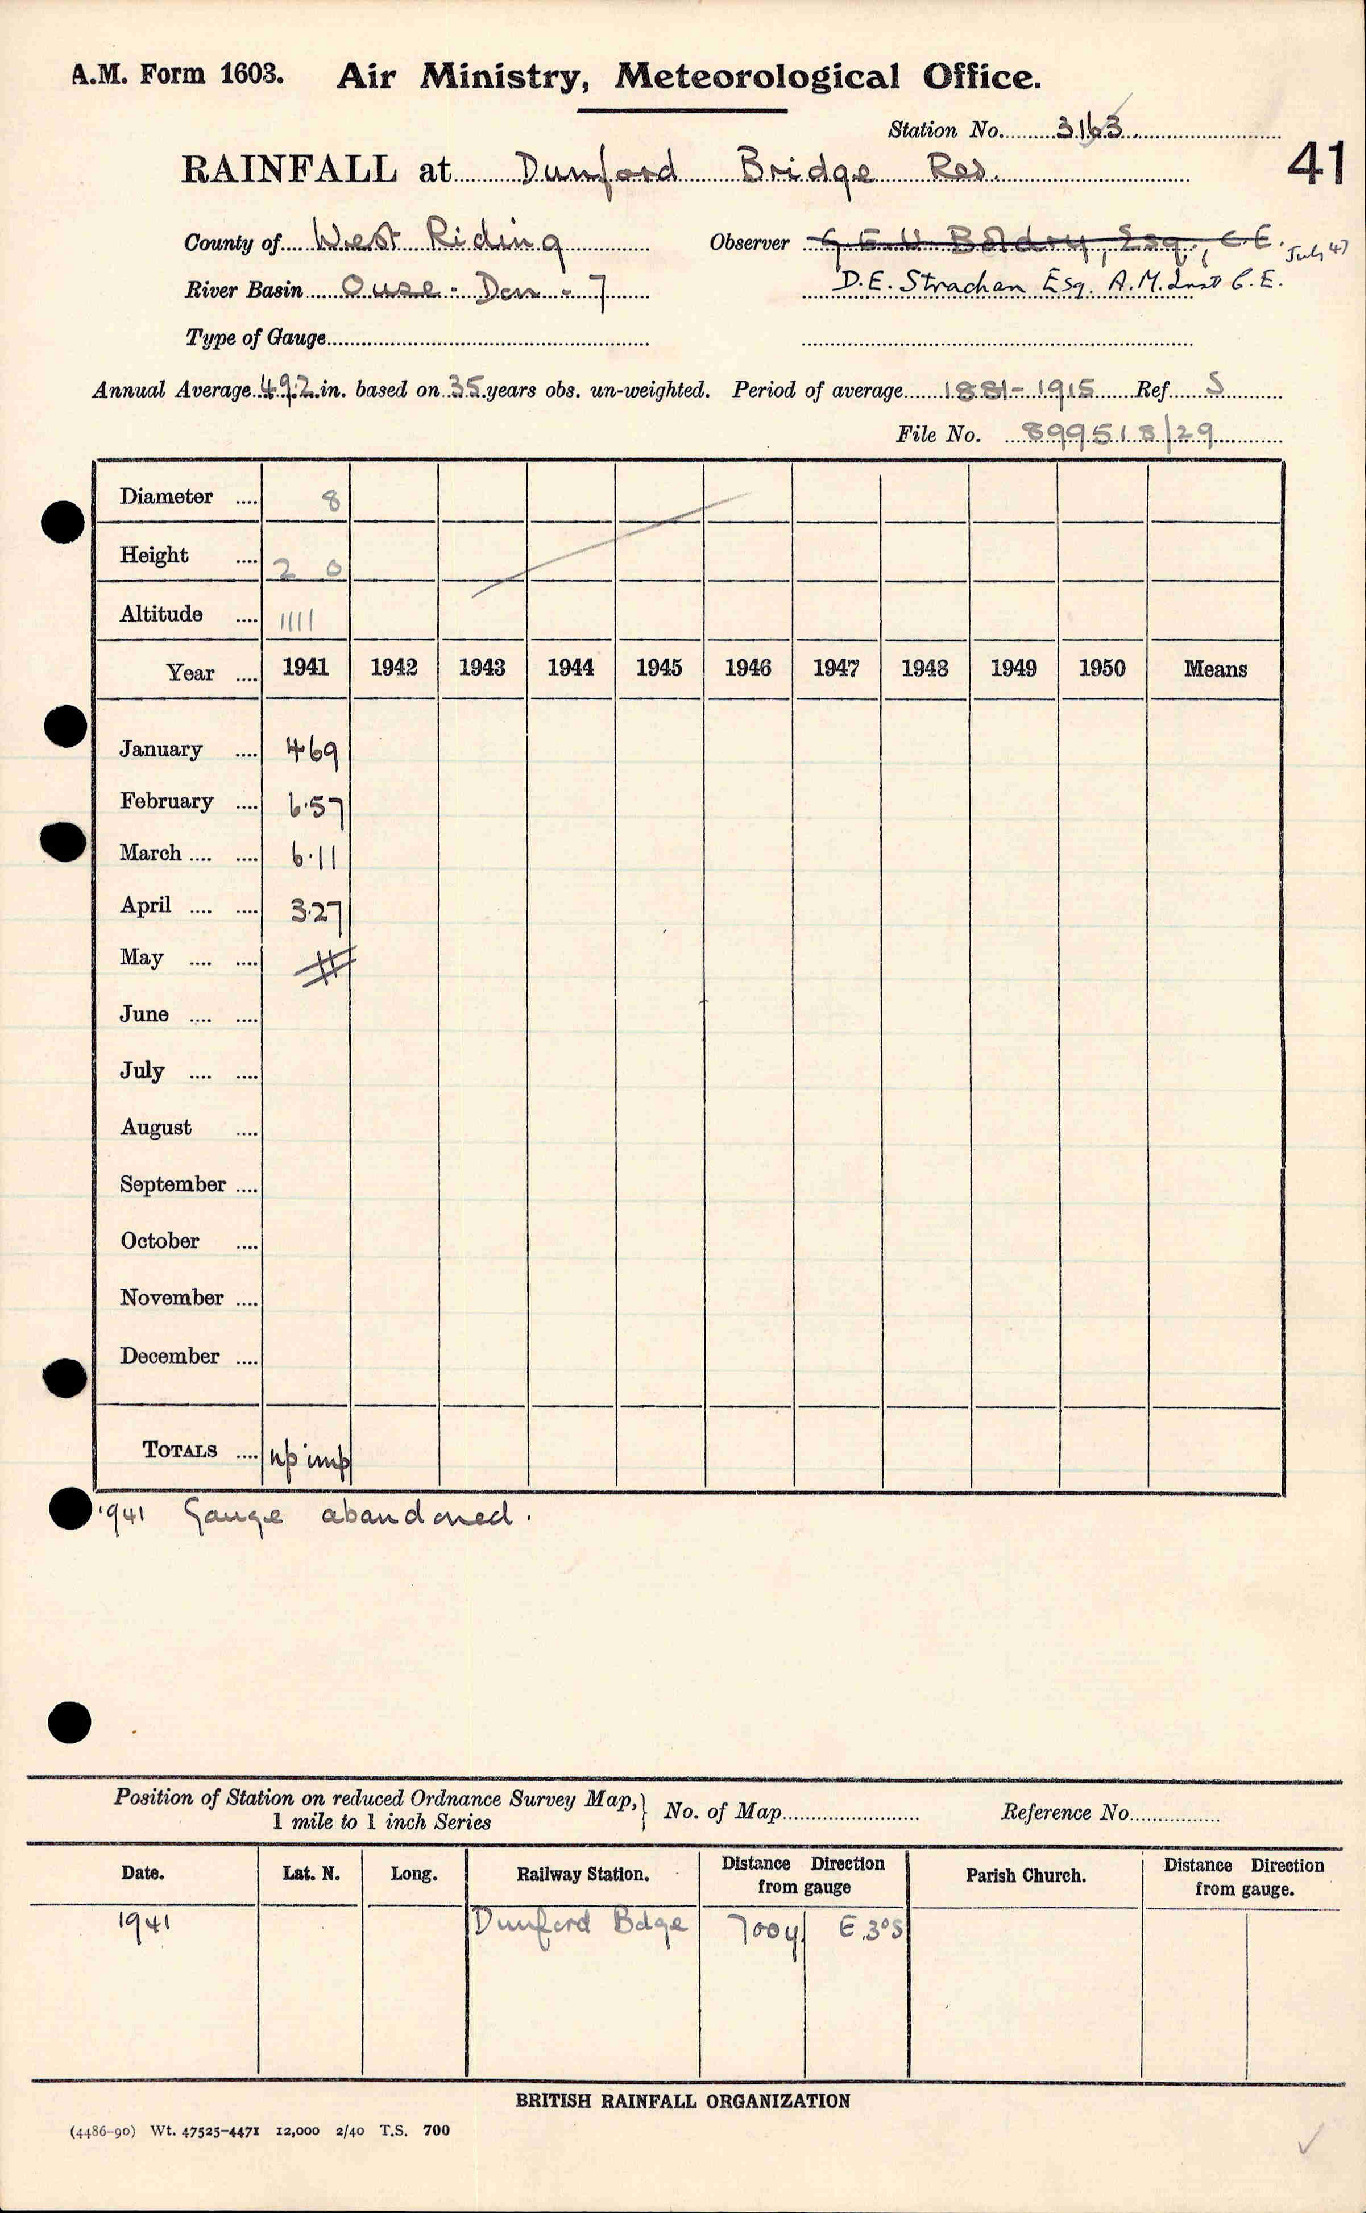 A.M. Form 1603. Air Ministry, Meteorological Office.
Station No. 3163.
41
RAINFALL at Dunford Bridge Res.
County of West Riding Observer G.E.U. Boldry, Esq., C.E. July 47
River Basin Ouse - Don - 7 D.E. Strachan Esq. A.M. Inst C.E.
Type of Gauge
Annual Average 49.2 in. based on 35 years obs. un-weighted. Period of average 1881-1915 Ref. S
File No. 899518/29
Diameter .... 8
Height .... 2 0
Altitude .... 1111
Year .... 1941 1942 1943 1944 1945 1946 1947 1948 1949 1950 Means
January .... 4.69
February .... 6.57
March .... .... 6.11
April .... .... 3.27
May .... ....
June .... ....
July .... ....
August ....
September ....
October ....
November ....
December ....
TOTALS .... np imp
1941 Gauge abandoned.
Position of Station on reduced Ordnance Survey Map, } No. of Map Reference No.
1 mile to 1 inch Series
Date. Lat. N. Long. Railway Station. Distance Direction from gauge Parish Church. Distance Direction from gauge.
1941 Dunford Bdge 700y E.3°S
BRITISH RAINFALL ORGANIZATION
(4486-90) Wt. 47525-4471 12,000 2/40 T.S. 700